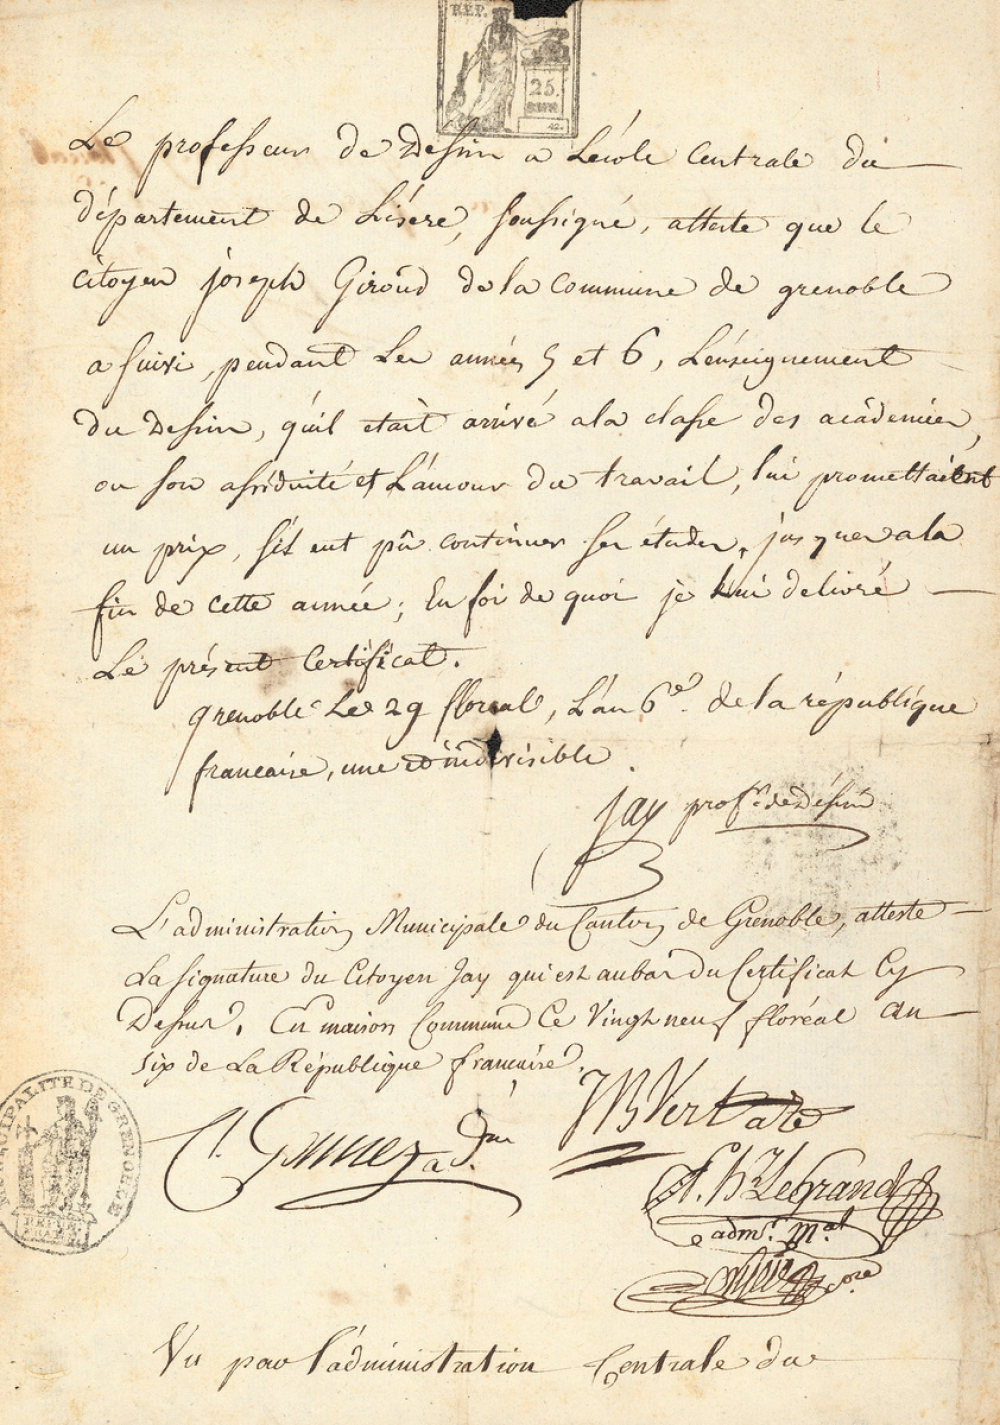 REP.
25.
42.
Le professeur de Dessin a Lécole Centrale du
département de L'isere, soussigné, atteste que le
citoyen joseph Giroud de la commune de grenoble
a suivi, pendant Les années 5 et 6, Lénseignement
du Dessin, qúil etait arrivé ala classe des acádemies,
ou son assiduité et L'amour du travail, lui promettaient
un prix, s'il eut pû continuer ses études, jusques ala
fin de cette année; En foi de quoi je lui delivré
Le présent Certificat.
grenoble Le 29 floreal, L'an 6e. de la république
francaise, une et indivisible.
Jay profr. de Déssin
L'administration Municipale du Canton de Grenoble, atteste
La signature du Citoyen Jay qui est au bas du Certificat Cy
Dessus. En maison Commune Ce Vingt neuf floréal an
six de La République francaise.
MUNICIPALITÉ DE GRENOBLE
C.
JB
Legrand
adm. Mal
Vu par l'administration Centrale du